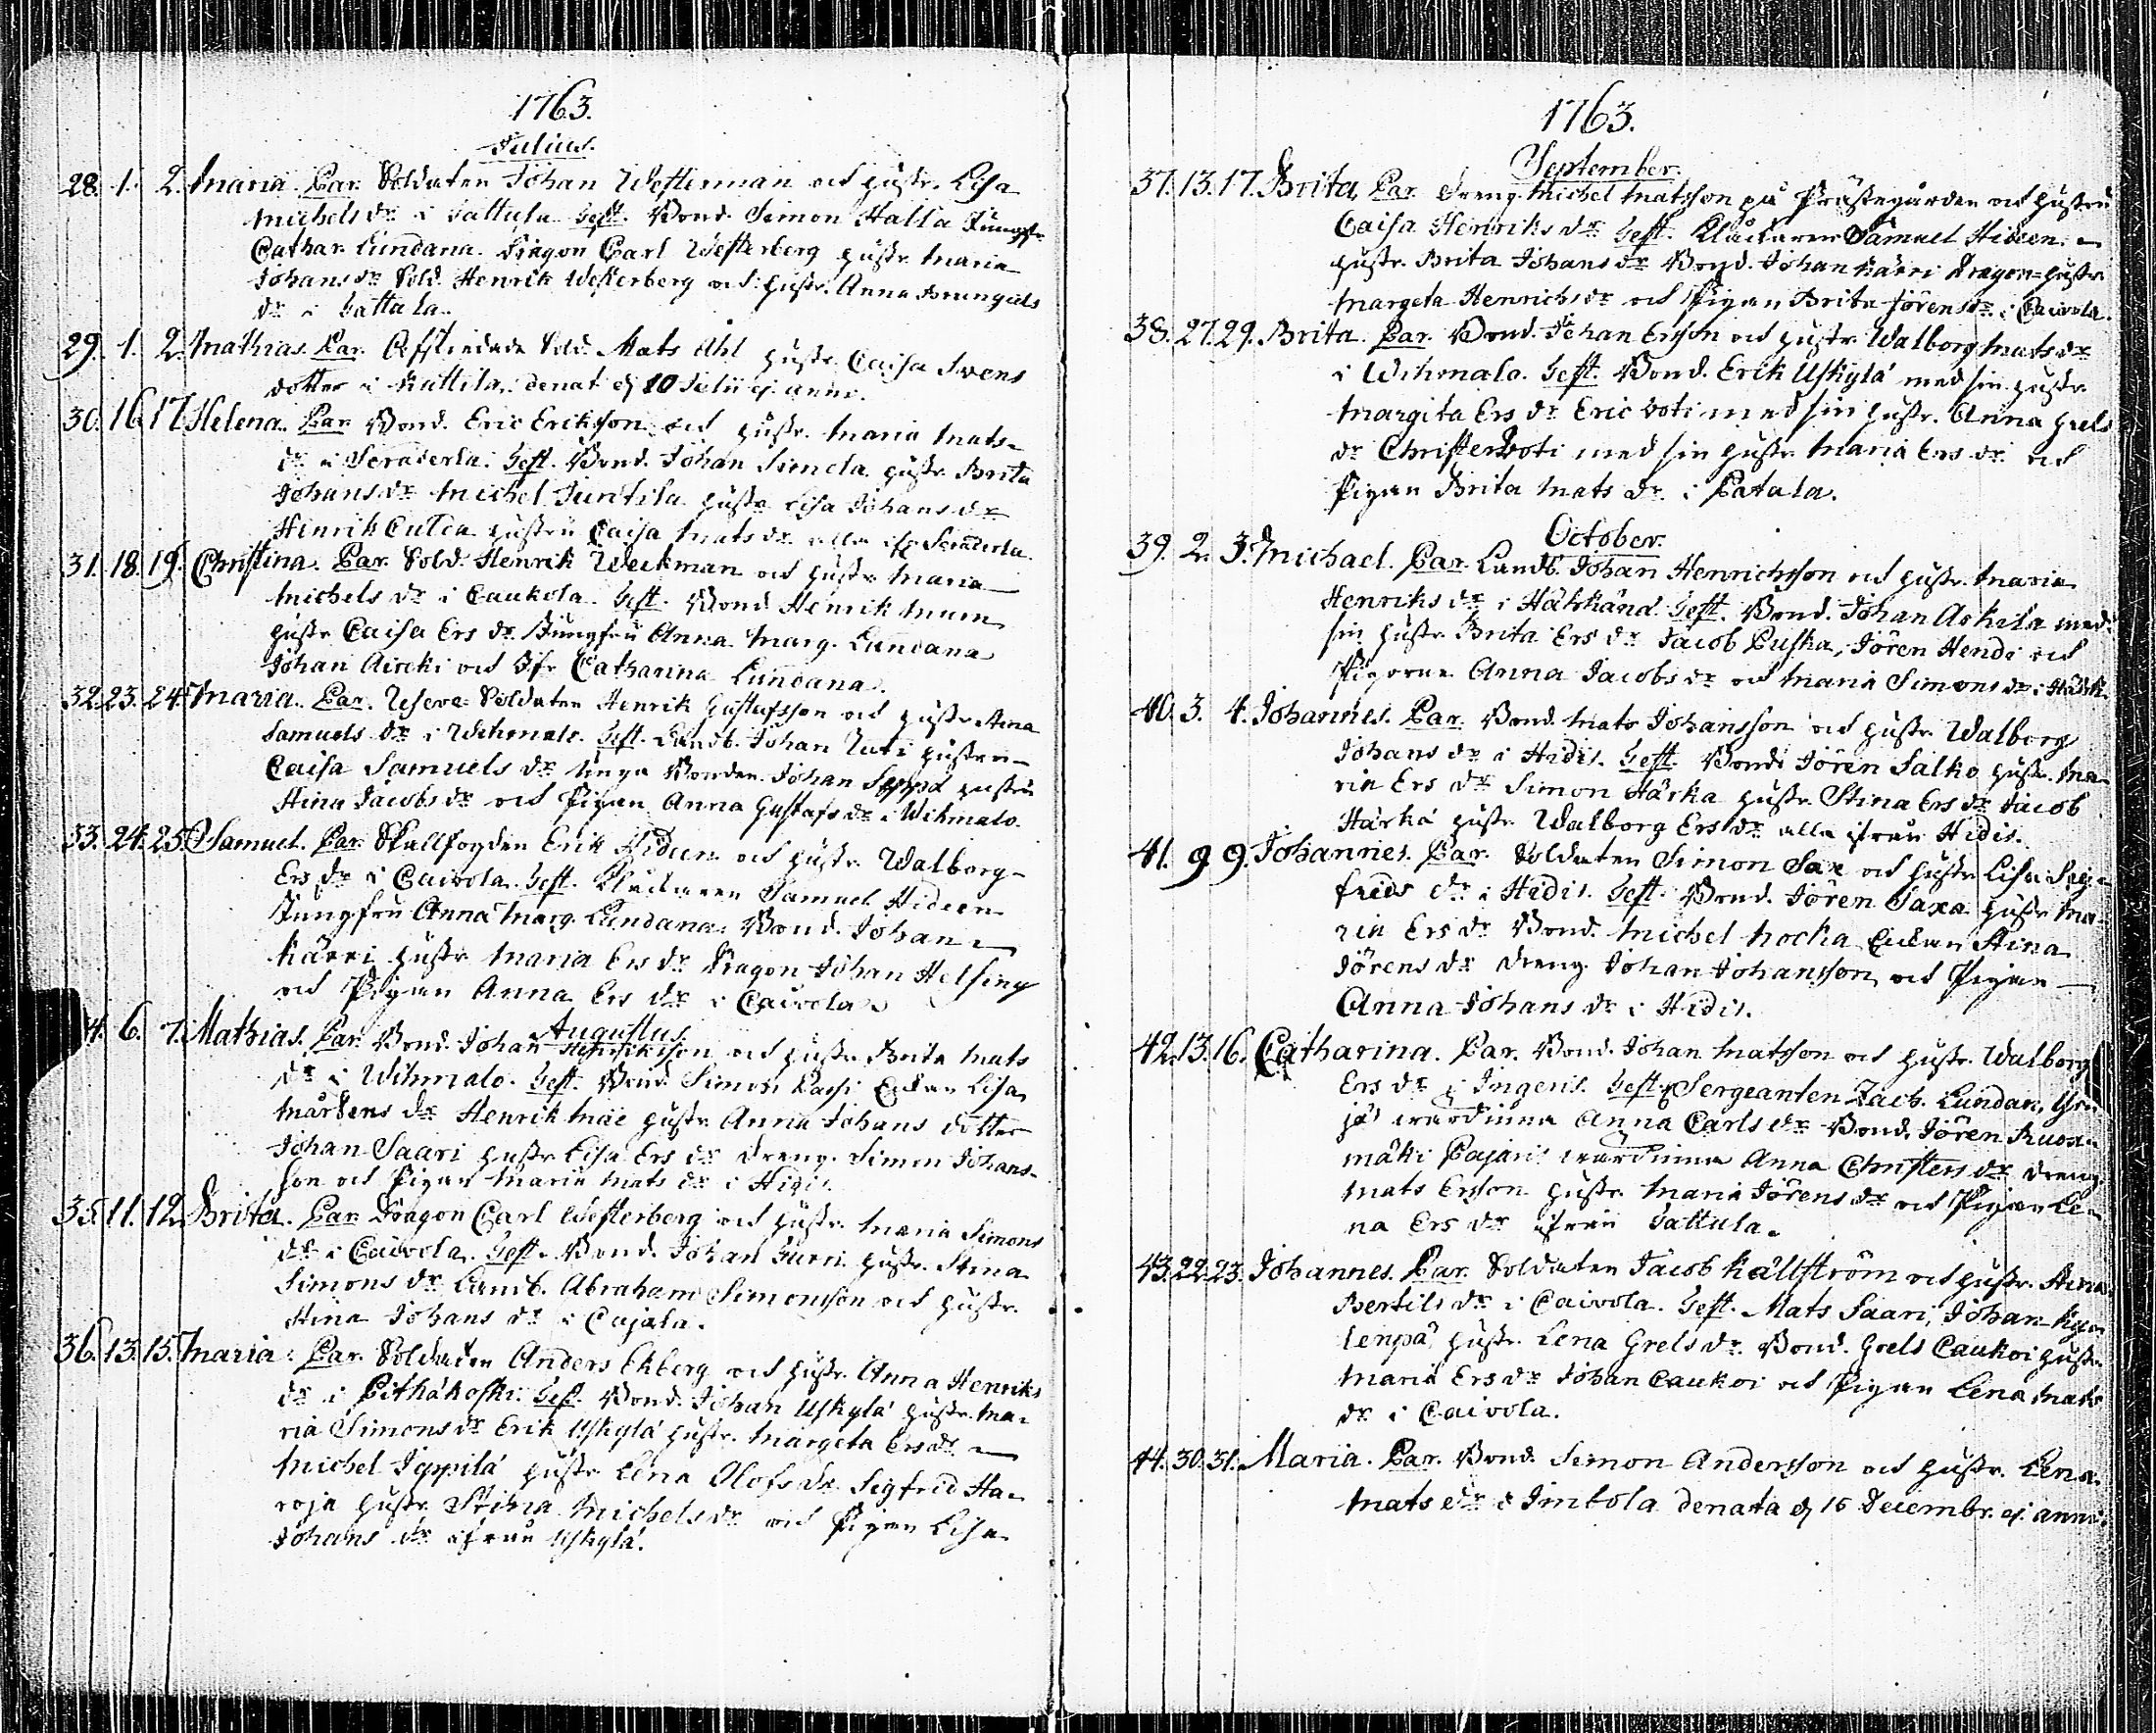 1763.
Julius.
28. 1. 2. Maria. Par. Soldaten Johan Westerman och hustr. Lisa
Michels dr i Sattula. Test. Bond. Simon Halla Jungfr.
Cathar. Lundana. Dragon Carl Westerberg hustr. Maria
Johans dr Sold. Henrik Westerberg och hustr. Anna
dr i Sattula.
29. 1. 2. Mathias. Par. Afskedade Sold. Mats Ahl hustr. Caisa Svens
dotter i Kuttila. denat. d. 10 Julii ej. anni.
30. 16. 17. Helena. Par. Bond. Eric Eriksson och hustr. Maria Mats
dr i. Test. Bond. Johan Simola hustr. Brita
Johans dr Michel Juntila hustr. Lisa Johans dr
Hinrik hustru Caisa Mats dr alla if.
31. 18. 19. Christina. Par. Sold. Henrik Weckman och hustr. Maria
Michels dr i Caukola. Test. Bond. Henrik Mum
hustr. Caisa Ers dr Jungfru Anna Marg. Lundana
Johan och Jfr. Catharina Lundana.
32. 23. 24. Maria. Par. Reserve-Soldaten Henrik Gustafsson och hustr. Stina
Samuels dr i Wihmalo. Test. Landb. Johan hustru
Caisa Samuels dr Unga Bonden Johan Seppä hustru
Stina Jacobs dr och Pigan Anna Gustafs dr i Wihmalo.
33. 24. 25. Samuel. Par. Skallfogden Erik Hideen och hustr. Walborg
Ers dr i Caivola. Test. Kläckaren Samuel Hideen
Jungfru Anna Marg. Lundana. Bond. Johan
Kärri hustr. Maria Ers dr Dragon Johan Helsing
och Pigan Anna Ers dr i Caivola.
Augustus.
34. 6. 7. Mathias. Par. Bond. Johan Henriksson och hustr. Brita Mats
dr i Wihmalo. Test. Bond. Simon Enkan Lisa
Mårtens dr Henrik hustr. Anna Johans dotter
Johan Saari hustr. Lisa Ers dr Dreng. Simon Johans-
son och Pigan Maria Mats dr i Hidis.
35. 11. 12. Brita. Par. Dragon Carl Westerberg och hustr. Maria Simons
dr i Caivola. Test. Bond. Johan hustr. Stina
Simons dr Landb. Abraham Simonsson och hustr.
Stina Johans dr i Cajala.
36. 13. 15. Maria. Par. Soldaten Anders Ekberg och hustr. Anna Henriks
dr i Pithäkoski. Test. Bond. Johan Uskylä hustr. Ma-
ria Simons dr Erik Uskylä hustr. Margeta Ers dr
Michel Jeppilä hustr. Lena Olofs dr. Sigfrid Ha-
roja hustr. Stina Michels dr och Pigan Lisa
Johans dr ifrån Uskylä.
1763.
September.
37. 13. 17. Brita. Par. Dreng. Michel Matsson på Prästegården och hustru
Caisa Henriks dr Test. Kläckaren Samuel Hideen
hustr. Brita Johans dr Bond. Johan Kärri Dragon-hustr.
Margeta Henrichs dr och Pigan Brita Jörens dr i Caivola.
38. 27. 29. Brita. Par. Bond. Johan Ersson och hustr. Walborg Mats dr
i Wihmalo. Test. Bond. Erik Uskylä med sin hustr.
Margita Ers dr Eric Voti med sin hustr. Anna Grels
dr Christer Voti med sin hustr. Maria Ers dr och
Pigan Brita Mats dr i Patala.
October.
39. 2. 3. Michael. Par. Landb. Johan Henrichsson och hustr. Maria
Henriks dr i. Test. Bond. Johan Askila med
sin hustr. Brita Ers dr Jacob Puska, Jören Hendi och
Pigorne Anna Jacobs dr och Maria Simons dr i
40. 3. 4. Johannes. Par. Bond. Mats Johansson och hustr. Walborg
Johans dr i Hidis. Test. Bond. Jören Salko hustr. Ma-
ria Ers dr Simon Härkä hustr. Stina Ers dr Jacob
Härkä hustr. Walborg Ers dr alla ifrån Hidis.
41. 9 9. Johannes. Par. Soldaten Simon Sax och hustr. Lisa Sig-
frids dr i Hidis. Test. Bond. Jören Saxa hustr. Ma-
ria Ers dr Bond. Michel Enkan Stina
Jörens dr Dreng. Johan Johansson och Pigan
Anna Johans dr i Hidis.
42. 13. 16. Catharina. Par. Bond. Johan Matsson och hustr. Walborg
Ers dr i Ingeris. Test. Sergeanten Zach. Lundan,
wärdinna Anna Carls dr Bond. Jören Ruos-
mäki Pajari wärdinna Anna Christers dr Dreng
Mats Ersson hustr. Maria Jörens dr och Pigan Le-
na Ers dr ifrån Sattula.
43. 22. 23. Johannes. Par. Soldaten Jacob Källström och hustr. Stina
Bertils dr i Caivola. Test. Mats Saari, Johan
lenpä hustr. Lena Grels dr. Bond. Grels Caukoi hustr.
Maria Ers dr Johan Caukoi och Pigan Lena Mats
dr i Caivola.
44. 30. 31. Maria. Par. Bond. Simon Andersson och hustr. Lena
Mats dr i Imbola denata d. 16 Decembr. ej. anni.